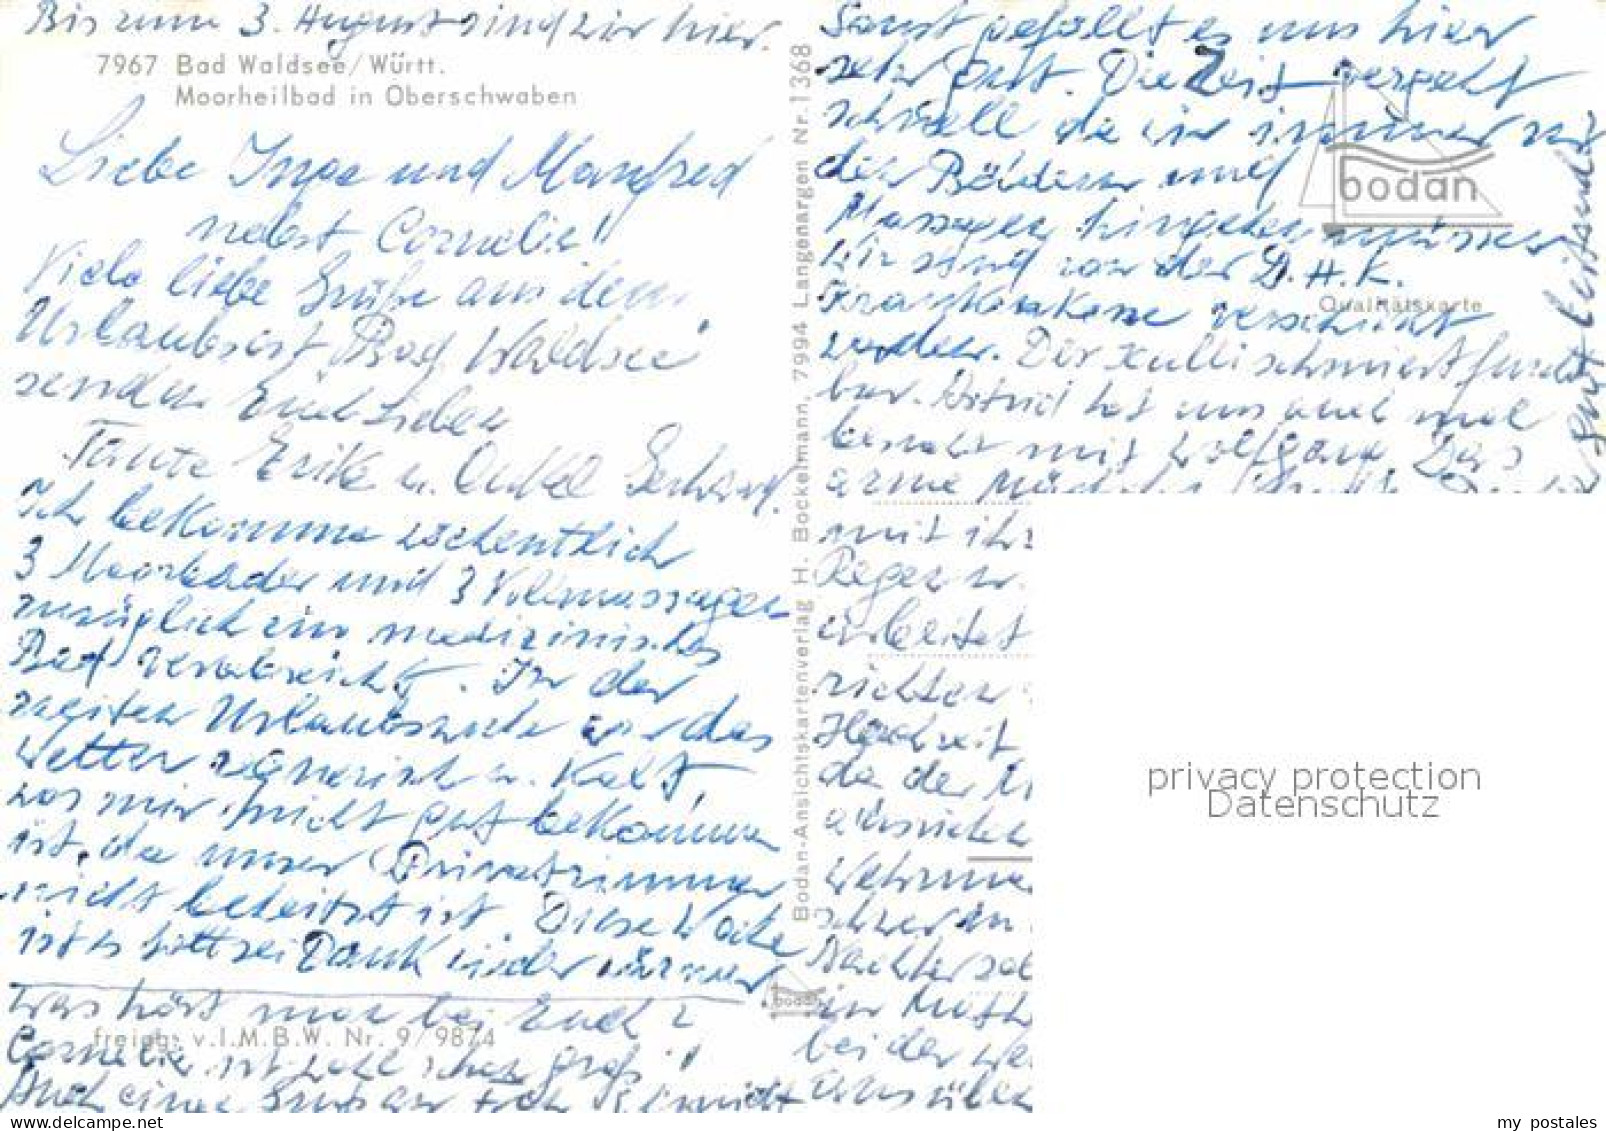 Bis zum 3. August sind wir hier.
7967 Bad Waldsee/Württ.
Moorheilbad in Oberschwaben
Liebe Inge und Manfred
nebst Cornelia!
Viele liebe Grüße aus dem
Urlaubsort Bad Waldsee
senden Euch Lieben
Tante Erika u. Onkel Gerhard.
Ich bekomme wöchentlich
3 Moorbäder und 3 Vollmassagen
zuzüglich ein medizinisches
Bad verabreicht. In der
zweiten Urlaubswoche war das
Wetter regnerisch u. Kalt,
was mir nicht gut bekommen
ist, da unser Privatzimmer
nicht beheitzt ist. Diese Woche
ist es Gott sei Dank wieder wärmer
Was hört man bei Euch?
freigb. v.I.M.B.W. Nr. 9/9874
Cornelia ist wohl schon groß!
Auch einen Gruß an
Bodan-Ansichtskartenverlag H. Bockelmann, 7994 Langenargen Nr.1368
bodan
Sonst gefällt es uns hier
sehr gut. Die Zeit vergeht
schnell da wir immer zu
den Bädern und
Massagen hingehen müssen
Wir sind von der D.A.K.
Krankenkasse verschickt
worden. Der Kulli schmiert furcht
bar. Astrid hat uns auch mal
besucht mit Wolfgang. Das
arme Mädchen
bodan
Qualitätskarte
mit ihr
Regen
arbeitet
richten
Hochzeit
da der
ausrichten
schwer
in
bei der
privacy protection
Datenschutz
my postales
www.delcampe.net